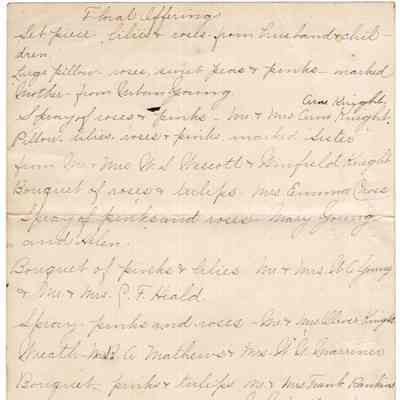 Floral Offering
Set piece lilies & roses from husband & chil-
dren
Large pillow - roses, sweet peas & pinks - marked
Mother - from Urban Young
Knight
Spray of roses & pinks - Mr & Mrs Knight.
Pillow lilies, roses & pinks marked Sister
from Mr & Mrs W. S. Wescott & Winfield Knight
Bouquet of roses & tulips Mrs Emma Cross
Spray of pinks and roses Mary Young
and Helen
Bouquet of pinks & lilies Mr & Mrs. W C Young
& Mr & Mrs. C. F. Heald
Spray - pinks and roses - Mr & Mrs Oliver Knight
Wreath A Mathews & Mrs.
Bouquet - pinks & tulips Mr & Mrs Frank Rankins